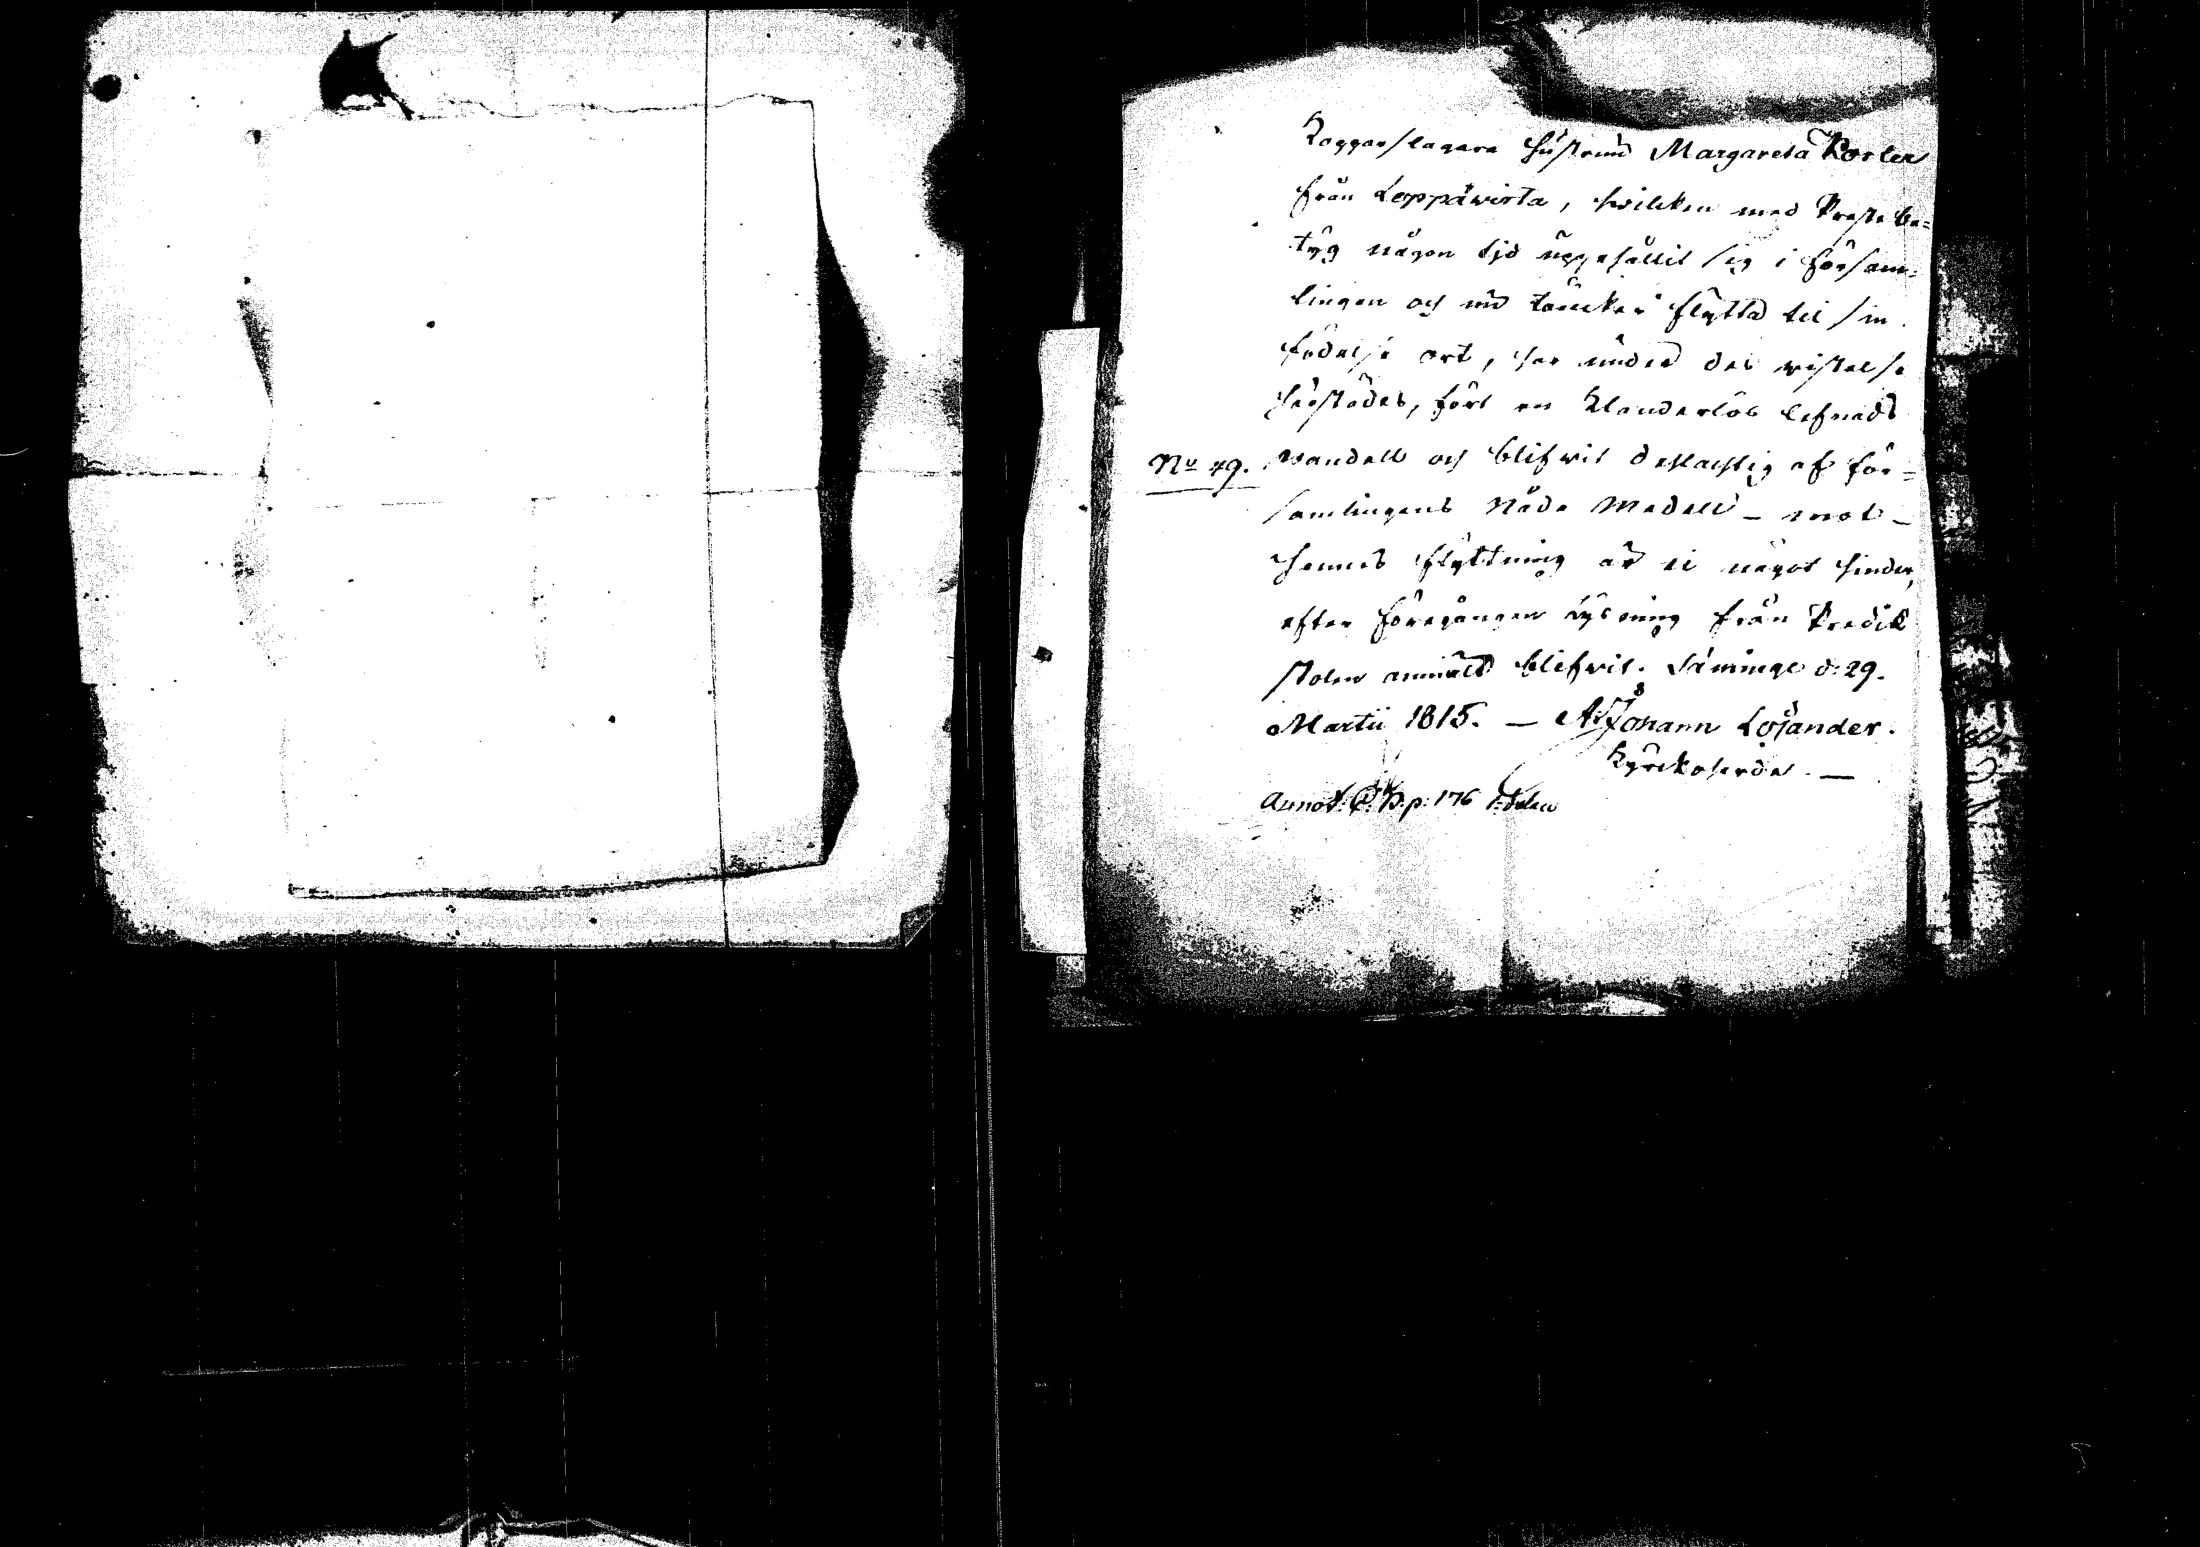 Koppar slagare hüstrun Margareta Porlen
från Leppäwirta, hwilcken med Preste be=
tyg någon tjd uppehållit sig i Försam=
lingen och nu täncker flytta til sin
födelse ort, har under des wistelse
härstädes, fört en Klanderlös lefnads
No 49. wandell och blifwit deltachtig af för=
samlingens Nåde Medell - mot -
hennes flyttning är ei något hinder,
efter föregången Lysning från Predik
stolen anmält blifwit. Säminge d. 29.
Martii 1815. — Johann Lojander.
Kyrckoherde. —
Annot. p. 176